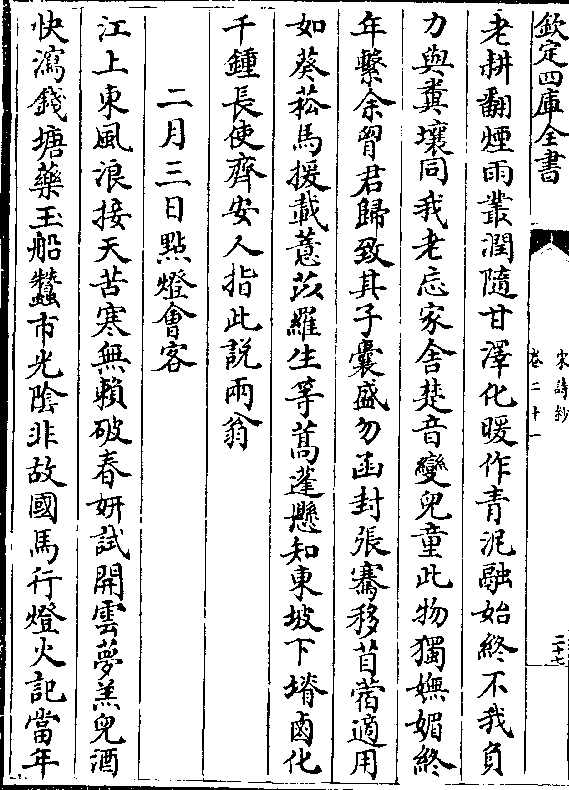 欽定四庫全書
宋詩鈔
卷二十一
二十七
老耕翻煙雨叢潤隨甘澤化暖作青泥融始終不我負
力與糞壤同我老忘家舍楚音變兒童此物獨嫵媚終
年繫余胷君歸致其子囊盛勿函封張騫移苜蓿適用
如葵菘馬援載薏苡羅生等蒿蓬懸知東坡下塉鹵化
千鍾長使齊安人指此説兩翁
二月三日點燈會客
江上東風浪接天苦寒無賴破春妍試開雲夢羔兒酒
快瀉錢塘藥玉船蠶市光陰非故國馬行燈火記當年